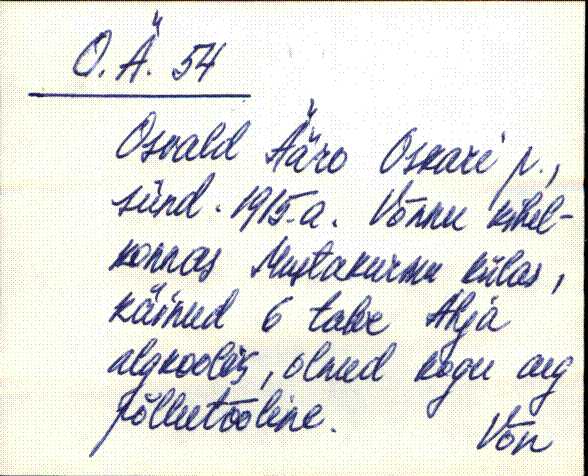 O.Ä. 54
Osvald Ääro Oskari p.,
sünd. 1915.a. Võnnu kihel-
konnas Mustakurmu külas,
käinud 6 talve Ahja
algkoolis, olnud kogu aeg
põllutööline. Võn